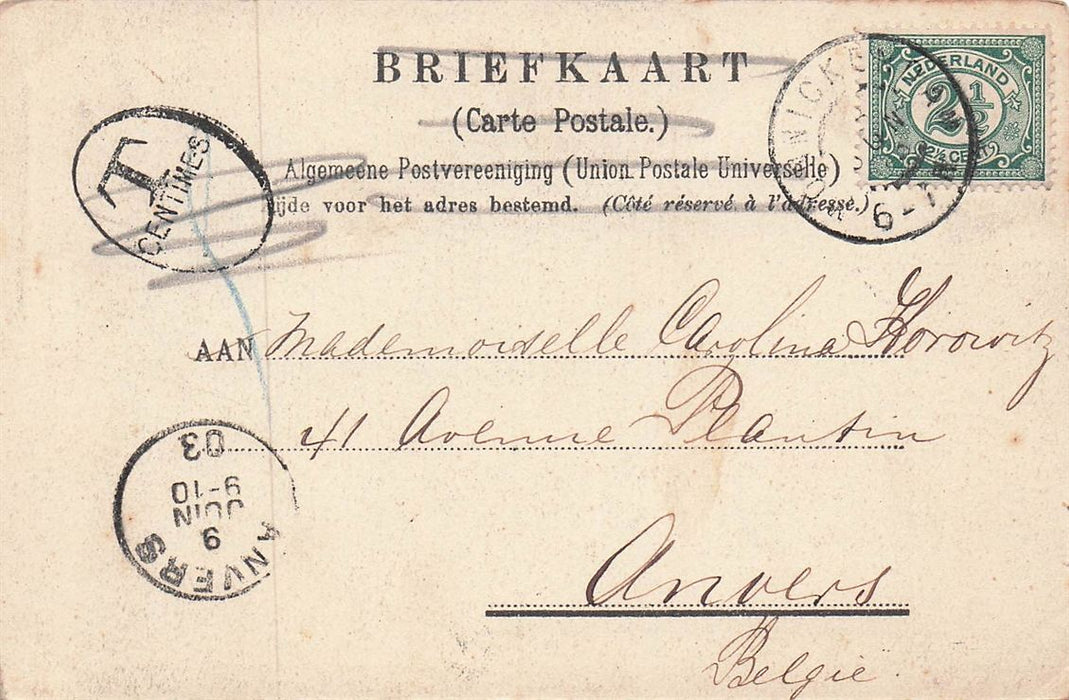 BRIEFKAART
(Carte Postale.)
Algemeene Postvereeniging (Union Postale Universelle)
ijde voor het adres bestemd. (Côté réservé à l'adresse.)
NEDERLAND
2½
2½ CENT
T
CENTIMES
AAN Mademoiselle Carolina Horowitz
41 Avenue Plantin
Anvers
Belgie.
ANVERS
9
JUIN
9-10
03